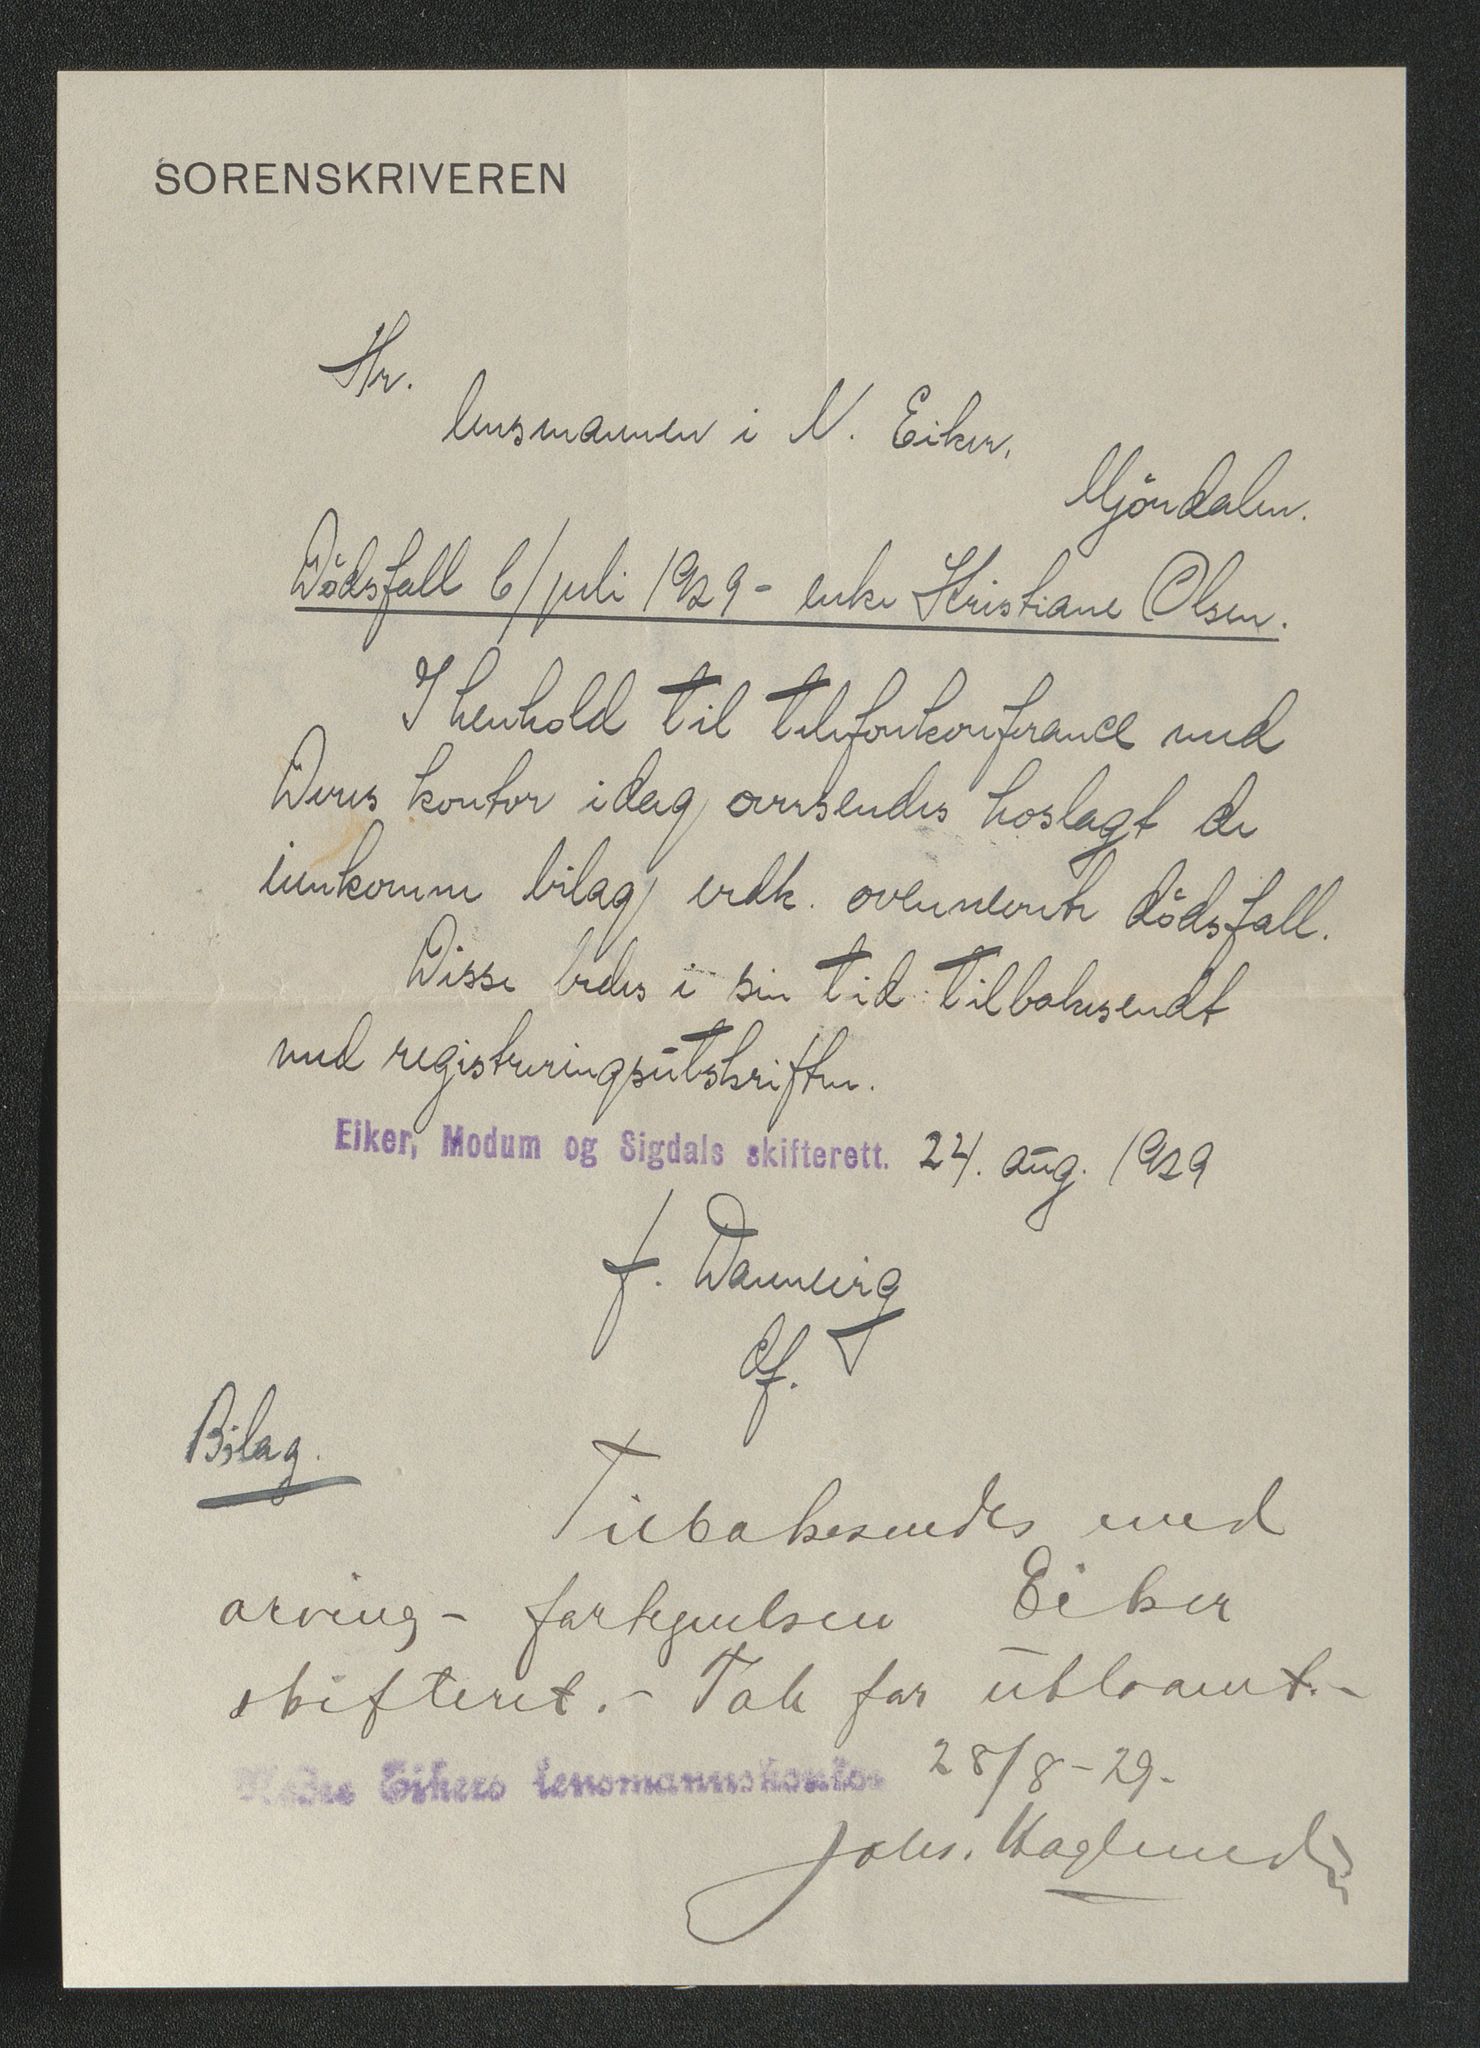 SORENSKRIVEREN
Hr.
lensmannen i N. Eiker,
Mjöndalen.
Dödsfall 6/juli 1929 - enke Kristiane Olsen.
I henhold til telefonkonferance med
Deres kontor idag oversendes hoslagt de
innkomne bilag vedk. ovennevnte dödsfall.
Disse bedes i sin tid tilbakesendt
med registreringsutskriften.
Eiker, Modum og Sigdals skifterett. 24. aug. 1929
f. Danneirg
df.
Bilag.
Tilbakesendes med
arving - fortegnelsen Eiker
skifteret. - Tak for utlaant. -
Nedre Eikers lensmannskontor 28/8 - 29 -
Johs.